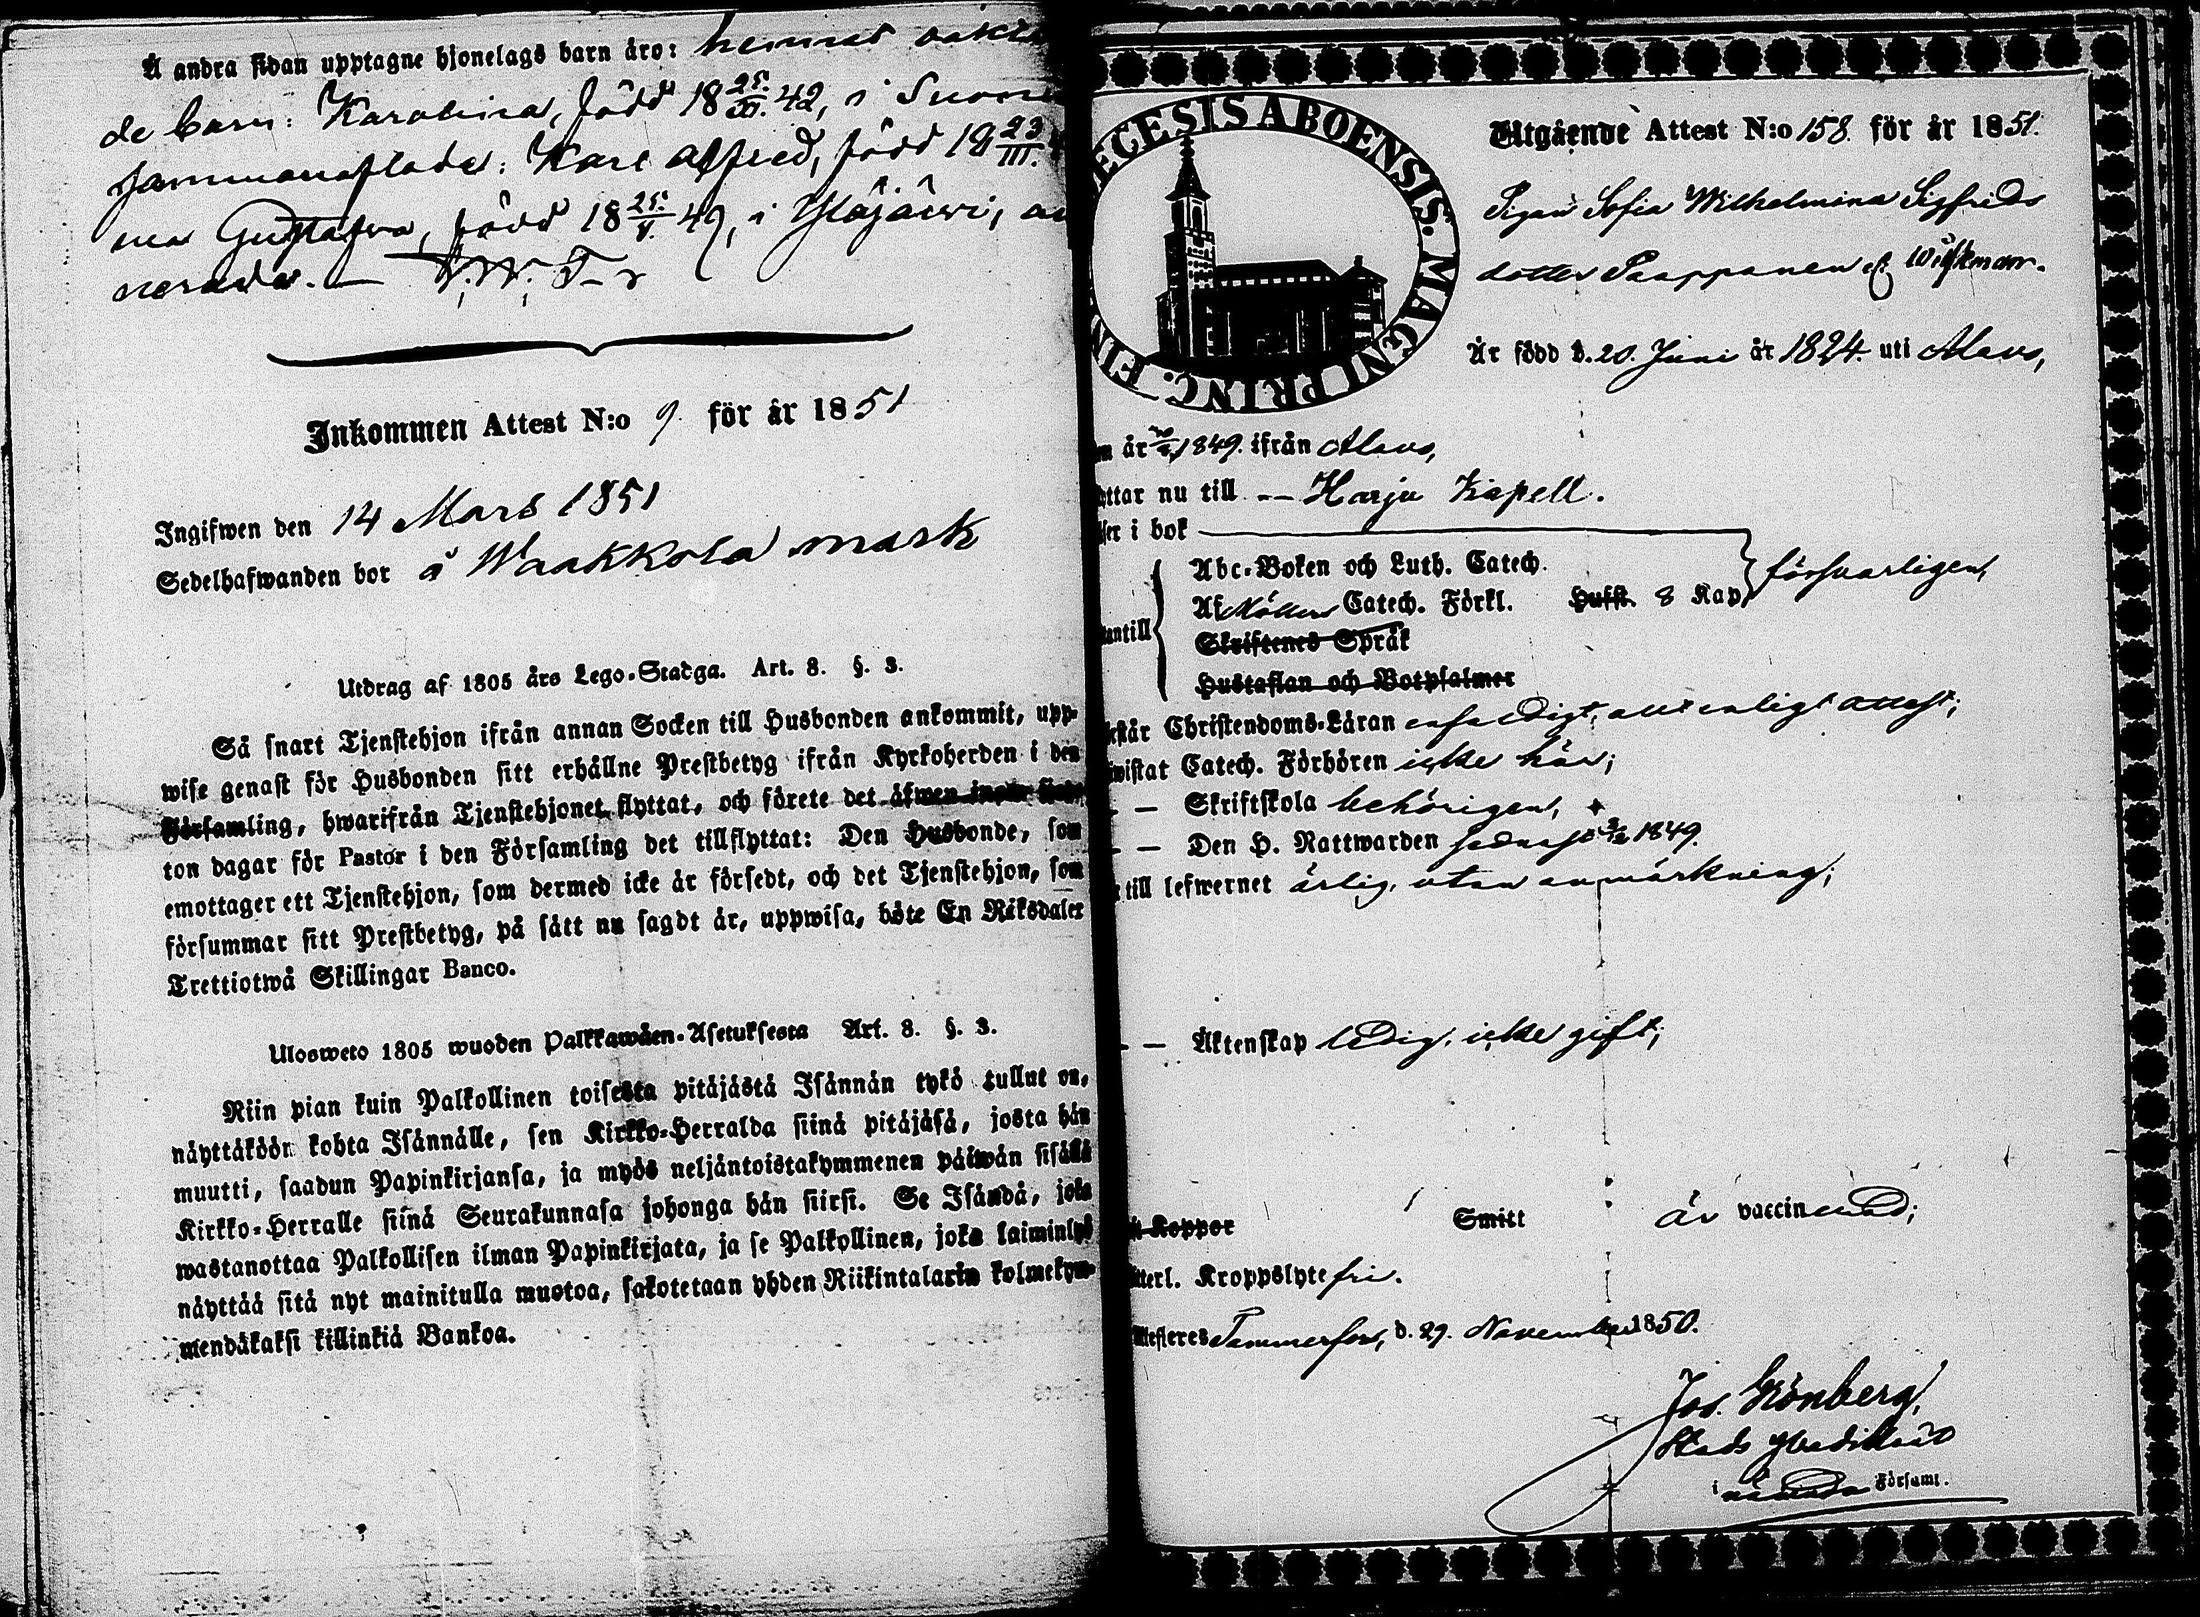 Å andra sidan upptagne hjonelags barn äro: hennes
de barn: Karolina, född 18 25/III. 42, i
Karl Alfred, född 18 23/III.
na Gustafva, född 18 25/V. 49, i Ylöjärvi,
nerade. —
Inkommen Attest N:o 9 för år 1851
Ingifwen den 14 Mars 1851
Sedelhafwanden bor å Waakkola mark
Utdrag af 1805 års Lego-Stadga. Art. 8. §. 3.
Så snart Tjenstehjon ifrån annan Socken till Husbonden ankommit, upp-
wise genast för Husbonden sitt erhållne Prestbetyg ifrån Kyrkoherden i den
Församling, hwarifrån Tjenstehjonet flyttat, och förete det äfwen inom fjor-
ton dagar för Pastor i den Församling det tillflyttat: Den Husbonde, som
emottager ett Tjenstehjon, som dermed icke är försedt, och det Tjenstehjon, som
försummar sitt Prestbetyg, på sätt nu sagdt är, uppwisa, böte En Riksdaler
Trettiotwå Skillingar Banco.
Ulosweto 1805 wuoden Palkkawäen-Asetuksesta Art. 8. §. 3.
Niin pian kuin Palkollinen toisesta pitäjästä Isännän tykö tullut on,
näyttäköön kohta Isännälle, sen Kirkko-Herralda siinä pitäjäsä, josta hän
muutti, saadun Papinkirjansa, ja myös neljäntoistakymmenen päiwän sisällä
Kirkko-Herralle siinä Seurakunnasa johonga hän siirsi. Se Isändä, joka
wastanottaa Palkollisen ilman Papinkirjata, ja se Palkollinen, joka laiminlyö
näyttää sitä nyt mainitulla muotoa, sakotetaan yhden Riikintalarin kolmekym-
mendäkaksi killinkiä Bankoa.
ECESIS ABOENSIS. MAGNI PRINC. FIN
Utgående Attest N:o 158. för år 1851.
Pigan Sofia Wilhelmina Sigfrids
dotter Paappanen Wickman.
Är född d. 20. Juni år 1824. uti Alavo,
år 1849. ifrån Alavo,
ttar nu till -- Harju Kapell.
ser i bok
Abc-Boken och Luth. Catech. försvarligen,
Af Möllers Catech. Förkl. Husst. 8 Kap.
antill
Skriftenes Språk
Hustaflan och Botpsalmer
står Christendoms-Läran enfaldigt, allt enligt attest;
wistat Catech. Förhören icke här;
— — Skriftskola behörigen,
— — Den H. Nattwarden sednast 1849.
till lefwernet ärlig, utan anmärkning;
— — Äktenskap ledig, icke gift;
Koppor Smitt är vaccinerad;
tterl. Kroppslyte fri.
Attesteres Tammerfors, d. 29. November 1850.
Jos. Grönberg,
Stads
i nämnda Församl.